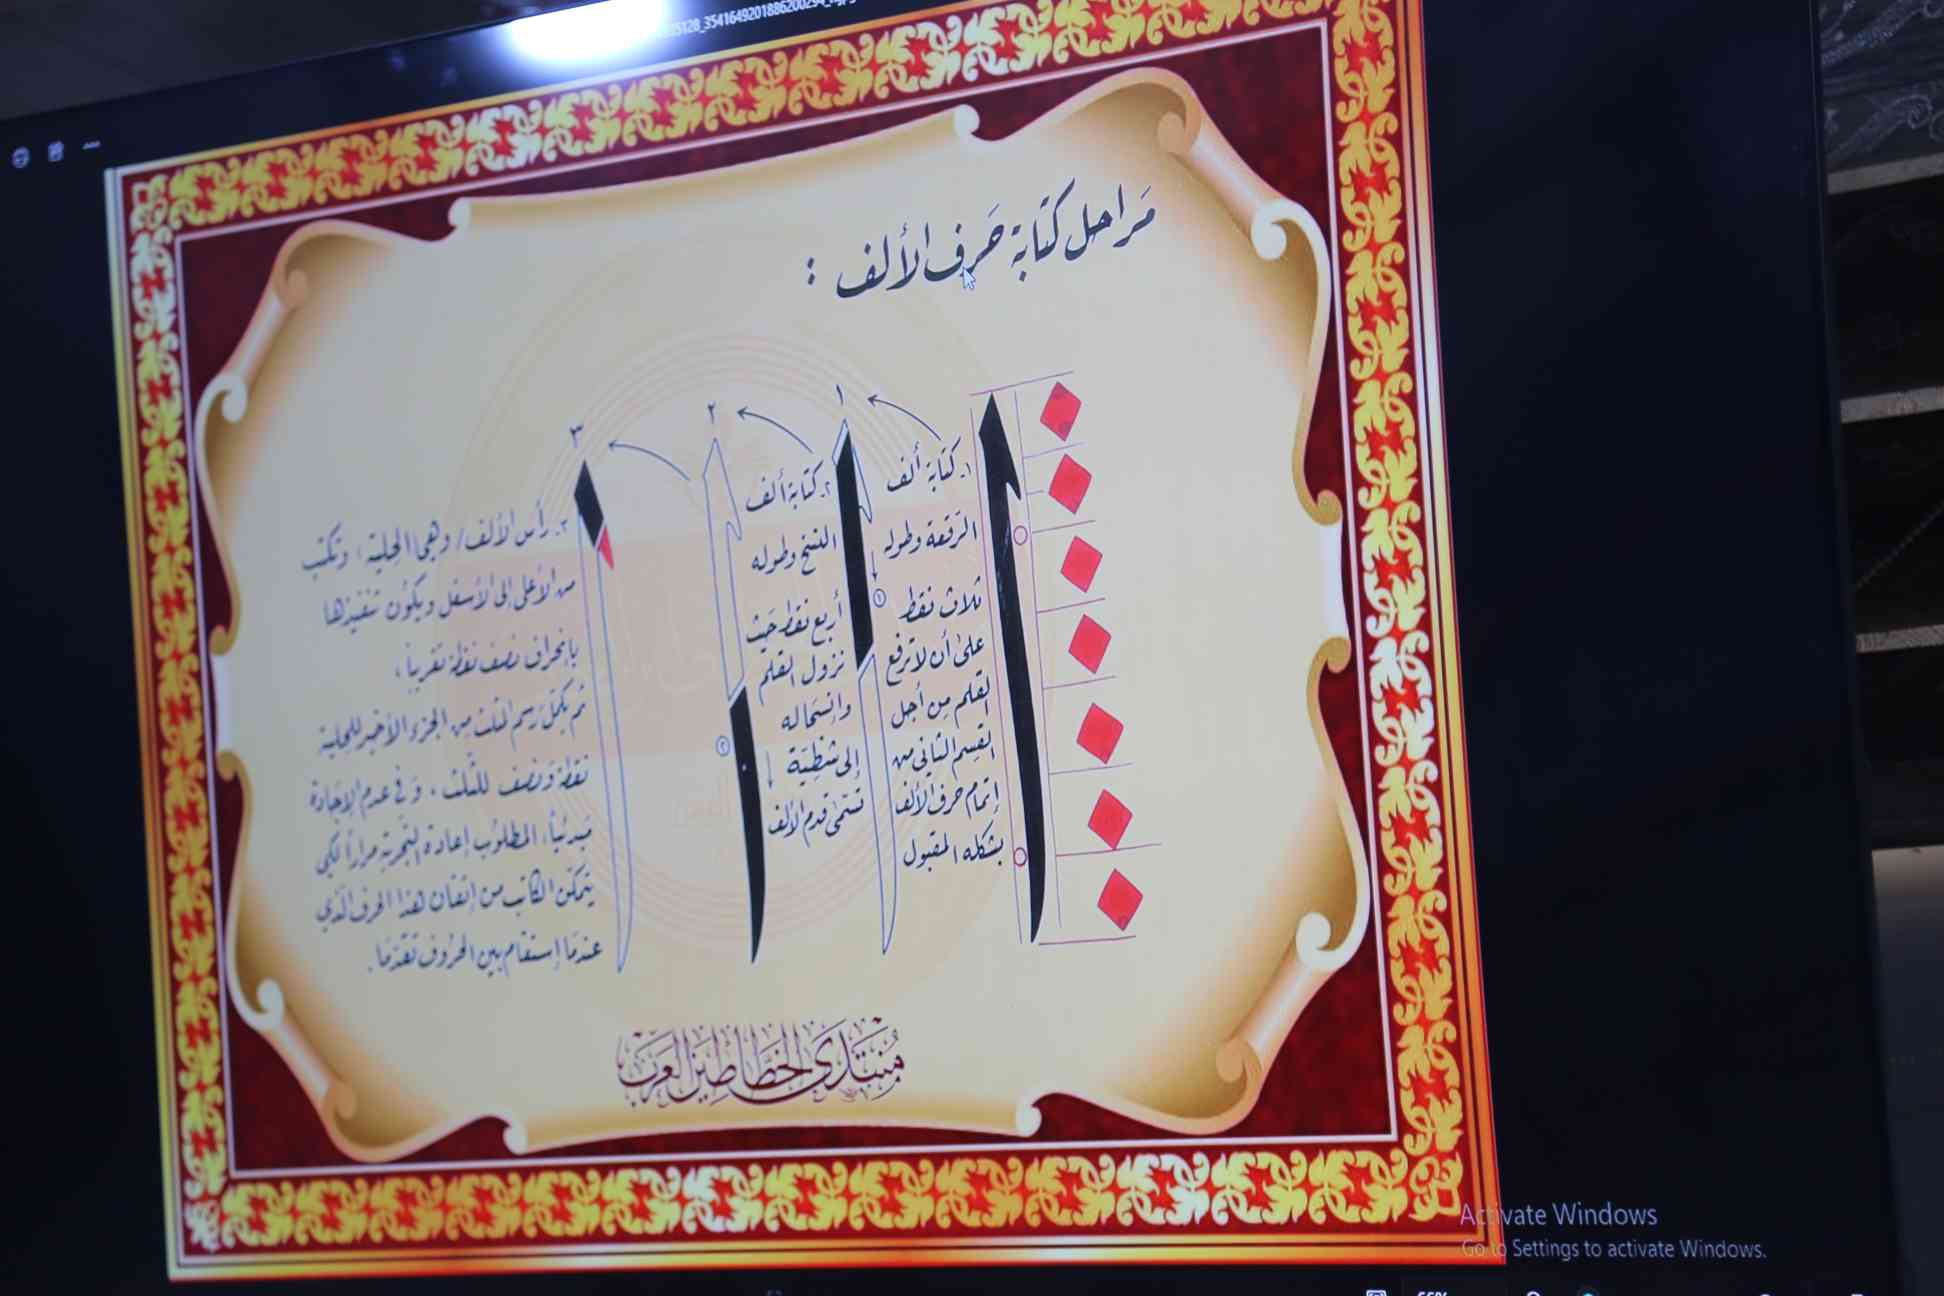 مَراحل كتابة حَرف الألف :
١
٢
٣
١ـ كتابة ألف
الرقعة وطوله
ثلاث نقط
على أن لا ترفع
القلم من أجل
القسم الثاني من
إتمام حرف الألف
بشكله المقبول
١
٢ـ كتابة ألف
النسخ وطوله
أربع نقط حيث
نزول القلم
وانسحابه
إلى شظيّة
تسمّى قدم الألف
٢
٣ـ رأس الألف/ وهي الحلية، وتكتب
من الأعلى إلى الأسفل ويكون تنفيذها
بانحراف نصف نقطة تقريباً،
ثم يكمّل رسم المثلث من الجزء الأخير للحلية
نقطة ونصف للثلث. وفي عدم الإجادة
مبدئياً، المطلوب إعادة التجربة مراراً لكي
يتمكن الكاتب من إتقان هذا الحرف الذي
عندما إستقام بين الحروف تقدّمَا.
مُنتَدى الخطاطين العرب
Activate Windows
Go to Settings to activate Windows.